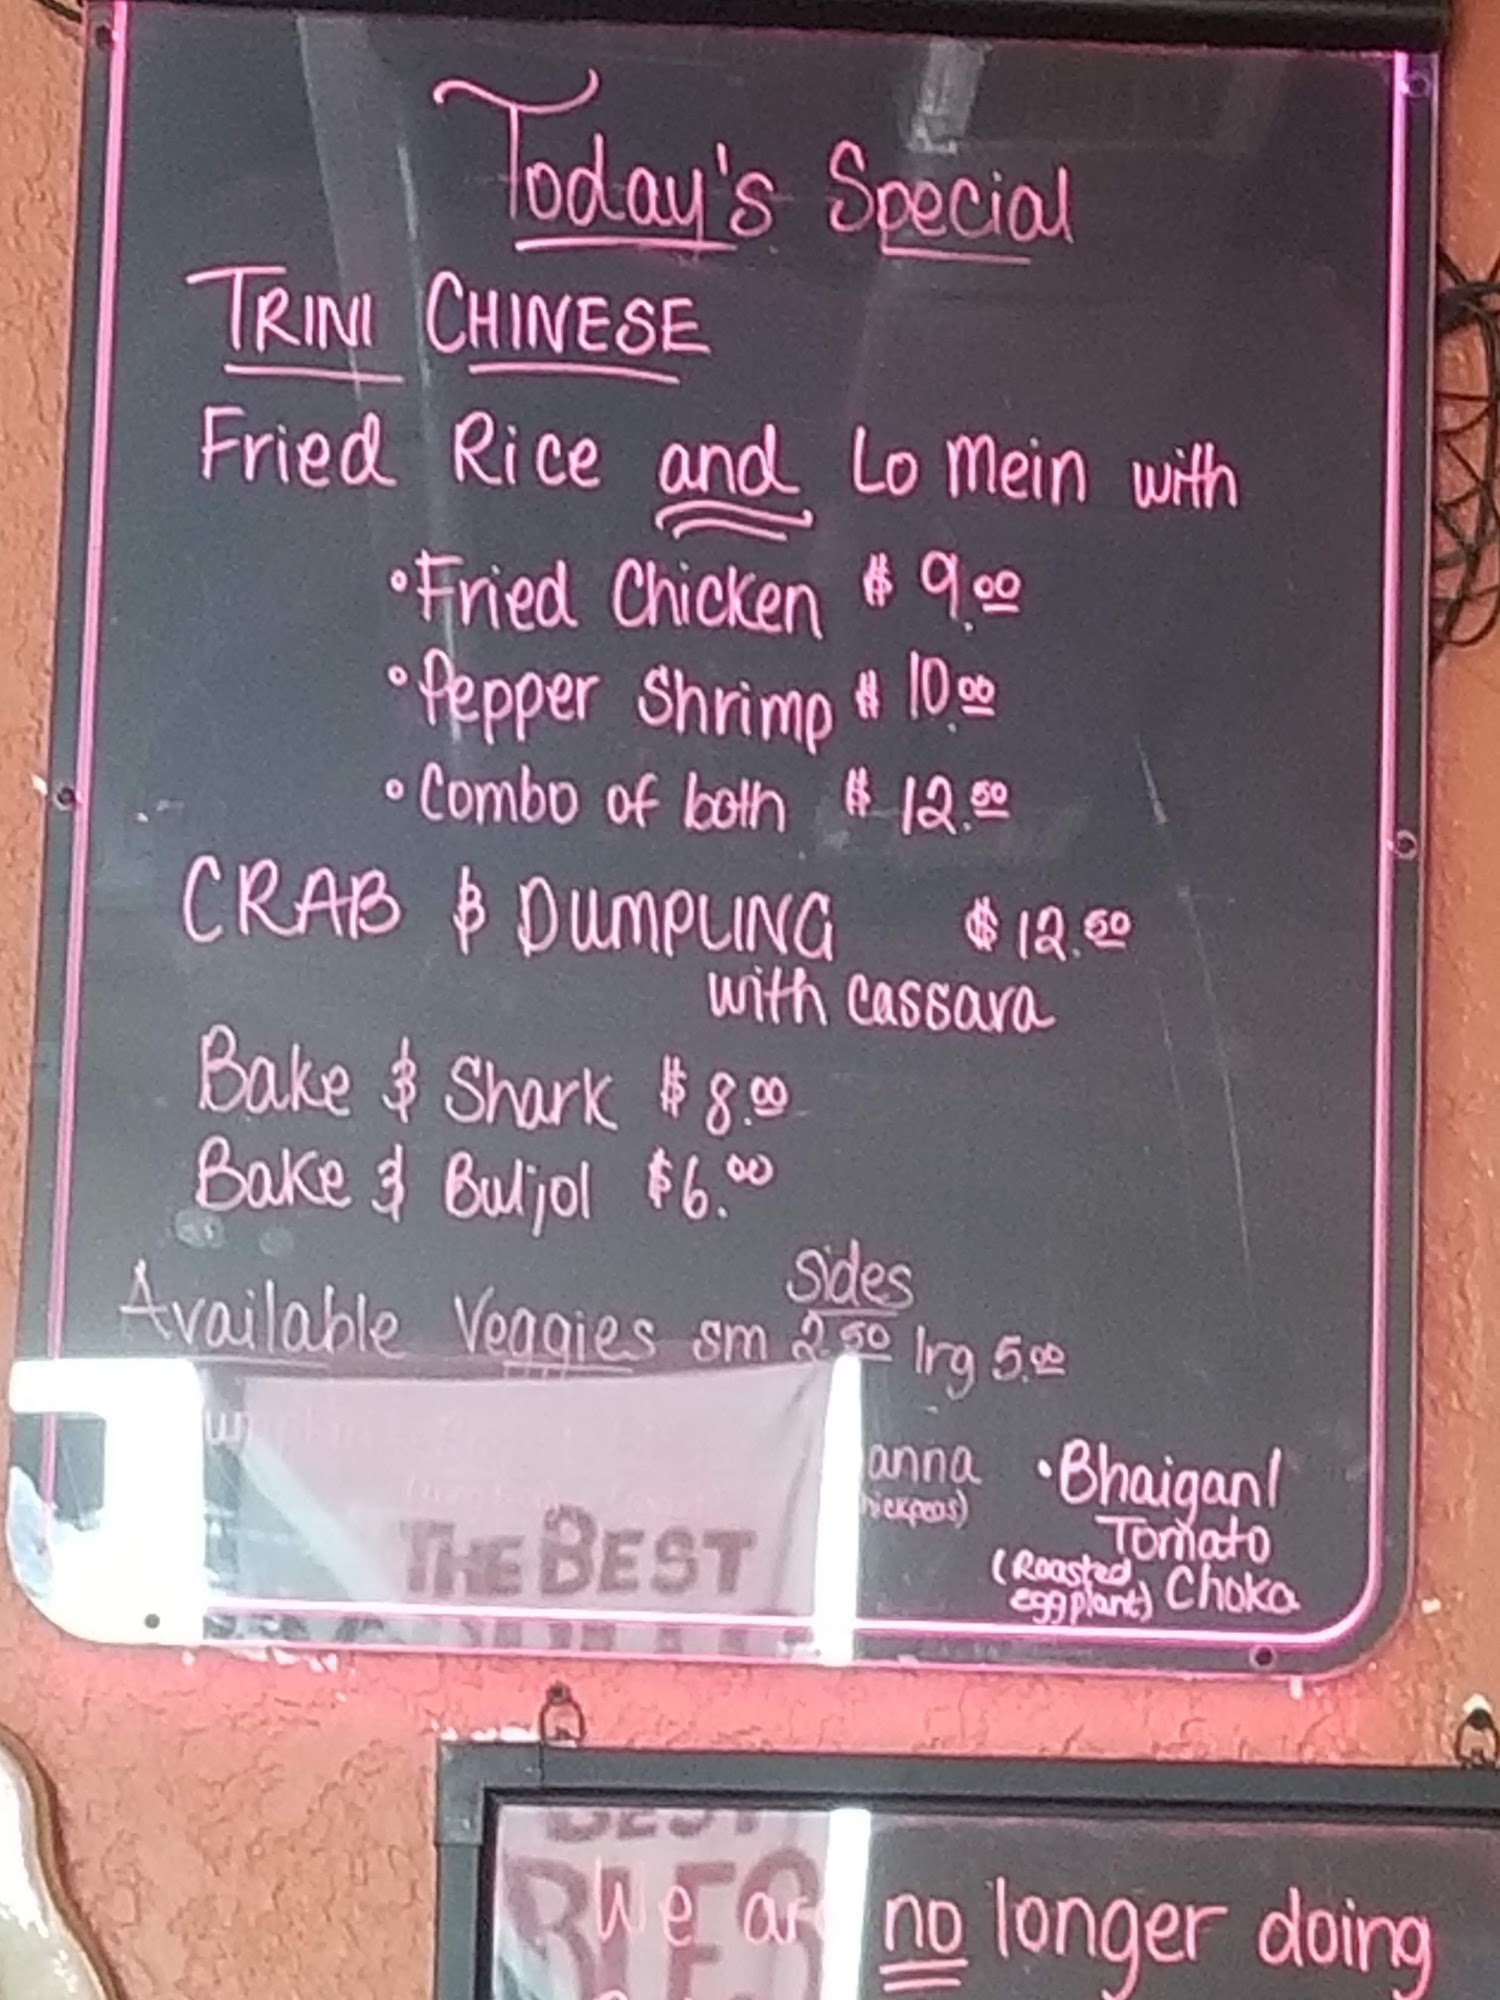 Today's Special
TRINI CHINESE
Fried Rice and Lo Mein with
• Fried Chicken $ 9.00
• Pepper Shrimp $ 10.00
• Combo of both $ 12.50
CRAB & DUMPLING $ 12.50
with cassava
Bake & Shark $ 8.00
Bake & Buljol $6.00
Sides
Available Veggies sm 2.50 lrg 5.00
anna • Bhaigan/
hickpeas) Tomato
(Roasted
eggplant) Choka
THE BEST
BEST
We are no longer doing